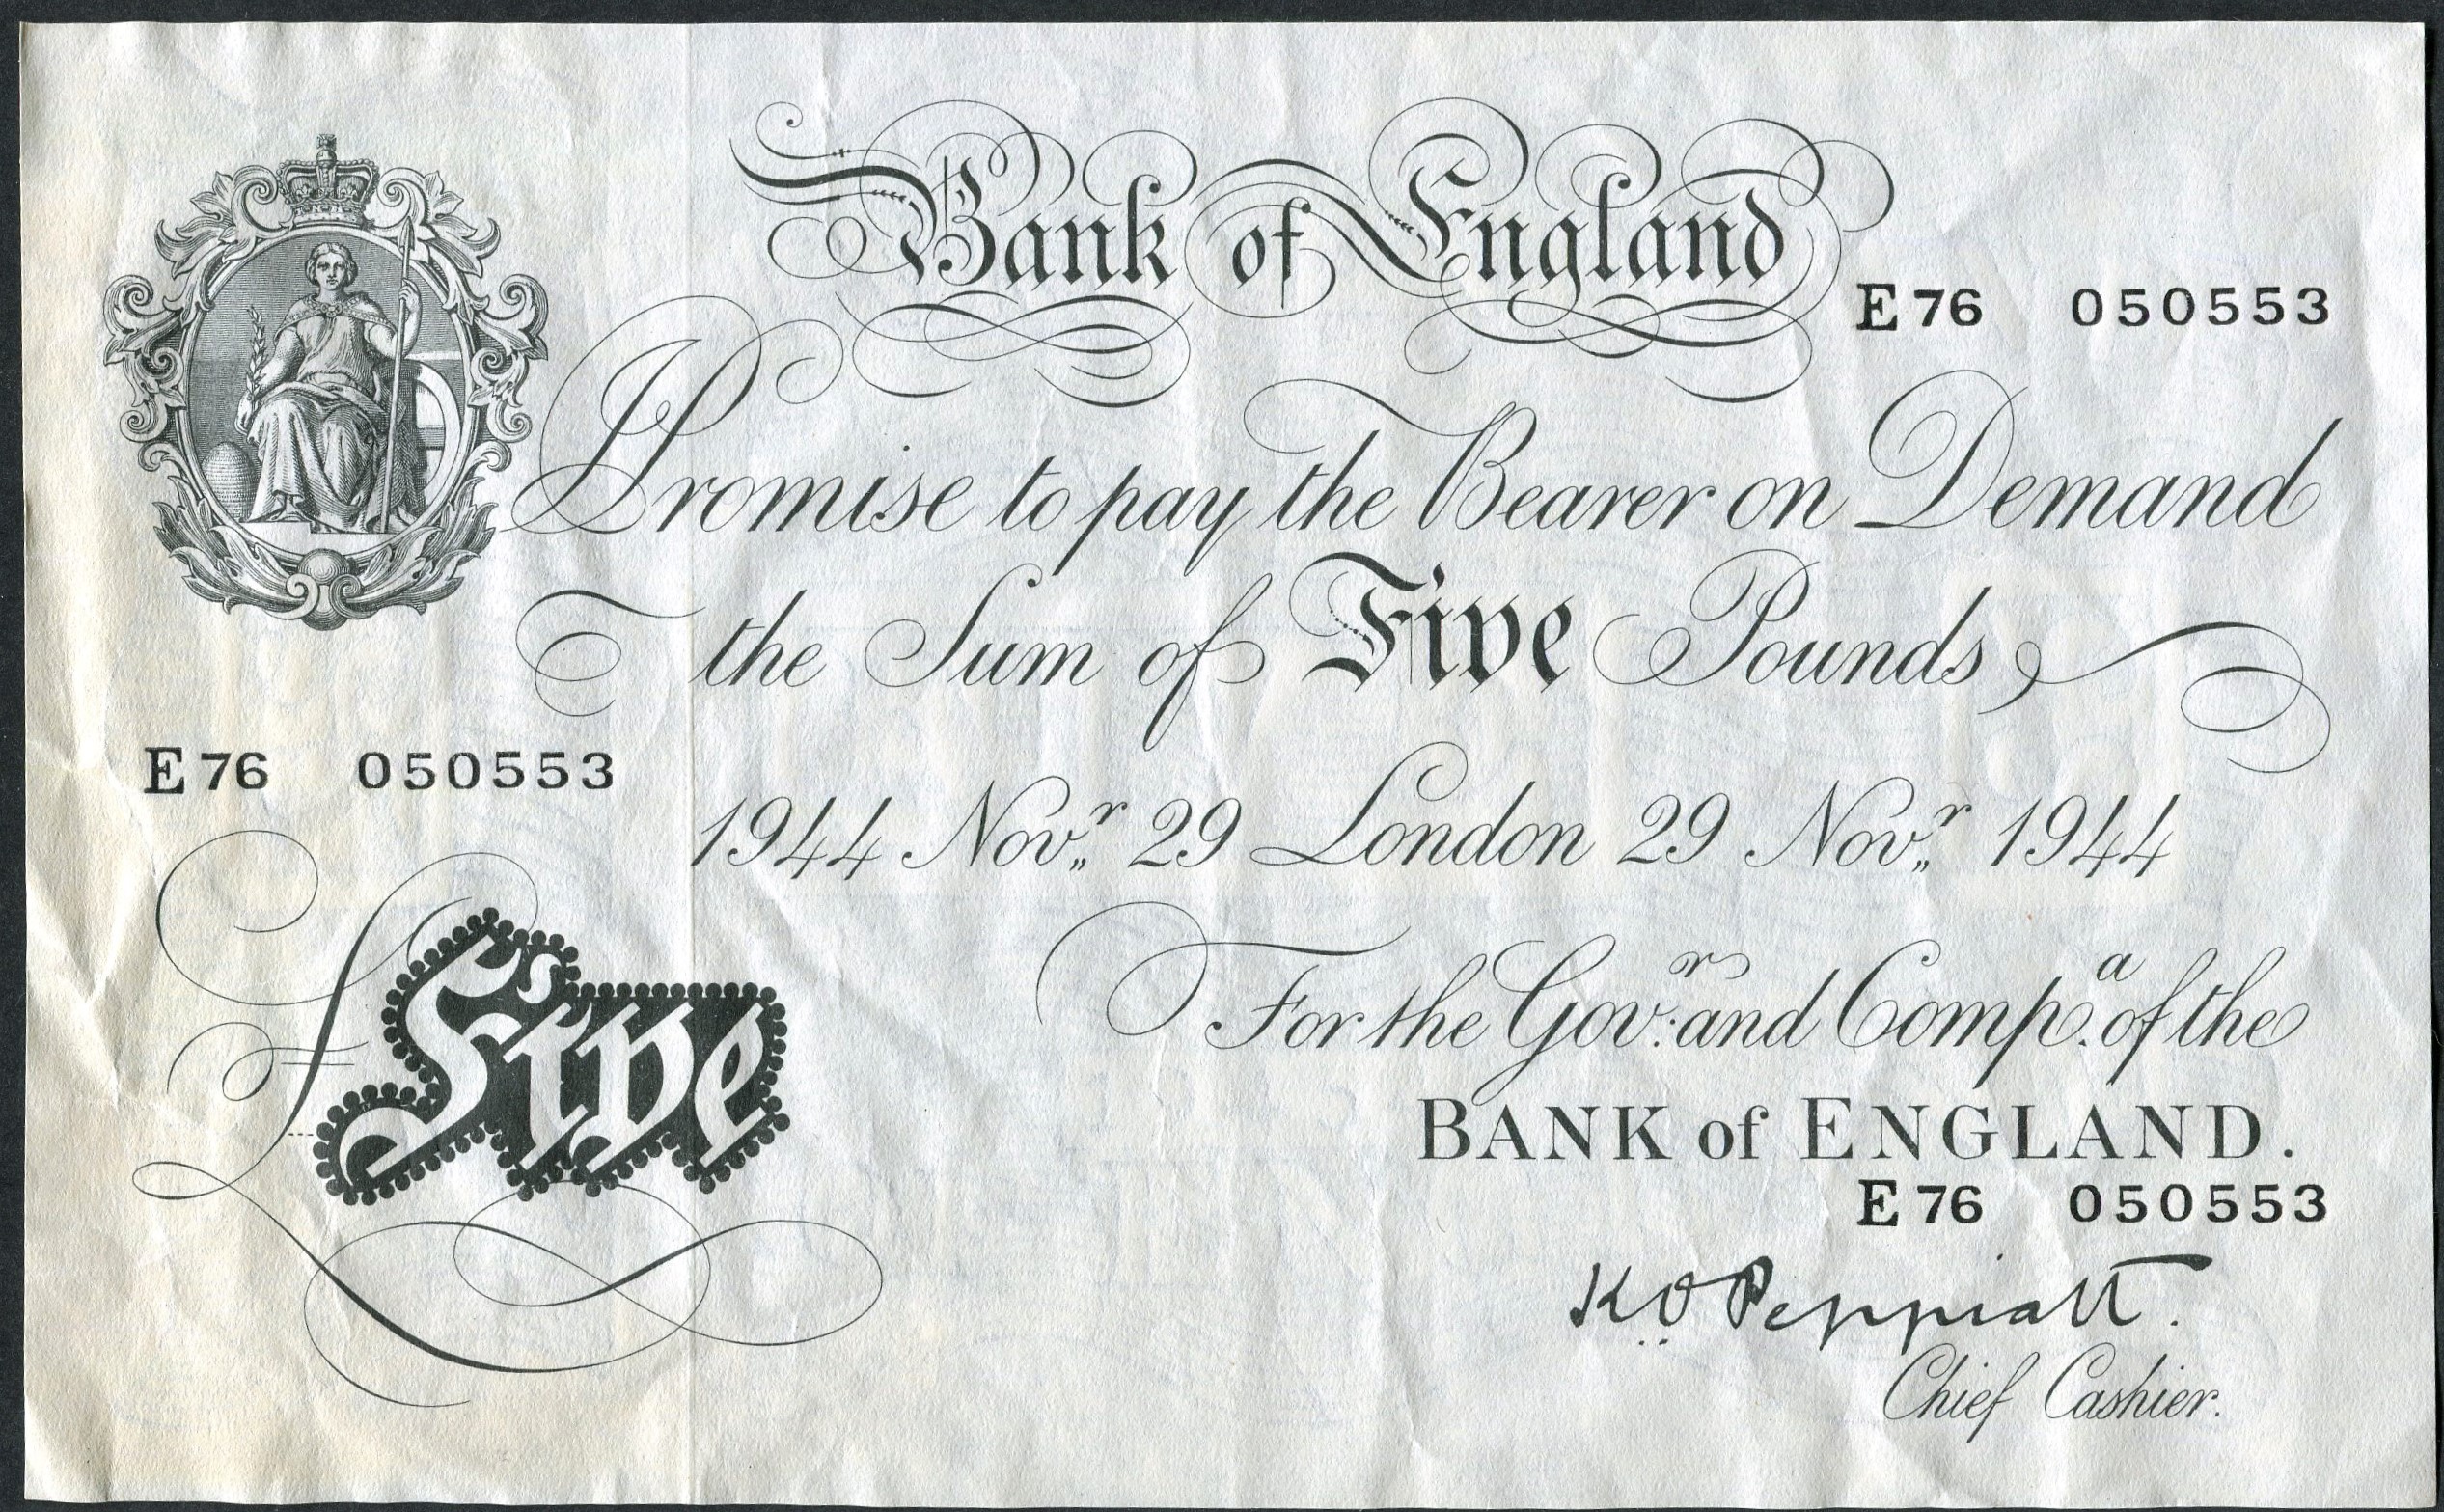 Bank of England
E 76 050553
I Promise to pay the Bearer on Demand
the Sum of Five Pounds
E 76 050553
1944 Nov.r 29 London 29 Nov.r 1944
£Five
For the Gov.r and Comp.a of the
BANK of ENGLAND.
E 76 050553
K.O. Peppiatt.
Chief Cashier.